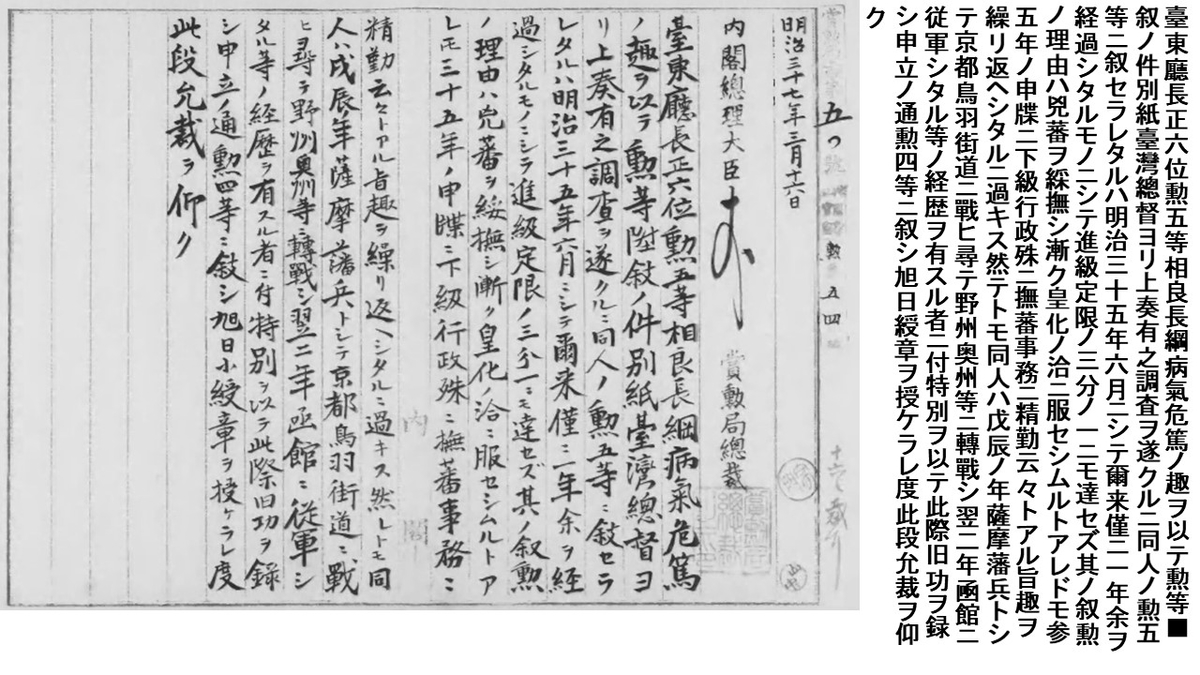 臺東廳長正六位勲五等相良長綱病氣危篤ノ趣ヲ以テ勲等■
叙ノ件別紙臺灣總督ヨリ上奏有之調査ヲ遂クル二同人ノ勲五
等二叙セラレタルハ明治三十五年六月二シテ爾来僅二一年余ヲ
経過シタルモノニシテ進級定限ノ三分ノ一二モ達セズ其ノ叙勲
ノ理由ハ兇蕃ヲ綵撫シ漸ク皇化ノ洽二服セシムルトアレドモ参
五年ノ申牒二下級行政殊二撫蕃事務二精勤云々トアル旨趣ヲ
繰リ返ヘシタル二過キス然テトモ同人ハ戊辰ノ年薩摩藩兵トシ
テ京都鳥羽街道二戰ヒ尋テ野州奥州等二轉戰シ翌二年凾館二
従軍シタル等ノ経歴ヲ有スル者二付特別ヲ以テ此際旧功ヲ録
シ申立ノ通勲四等二叙シ旭日綬章ヲ授ケラレ度此段允裁ヲ仰
ク
勲五四
明治三十七年三月十六日
内閣總理大臣 賞勲局總裁
臺東廳長正六位勲五等相良長綱病氣危篤
ノ趣ヲ以テ勲等陞敘ノ件別紙臺灣總督ヨ
リ上奏有之調査ヲ遂クルニ同人ノ勲五等ニ敘セラ
レタルハ明治三十五年六月ニシテ爾来僅ニ一年余ヲ経
過シタルモノニシテ進級定限ノ三分一ニモ達セズ其ノ叙勲
ノ理由ハ兇蕃ヲ綏撫シ漸ク皇化ノ洽ニ服セシムルトア
レトモ三十五年ノ申牒ニ下級行政殊ニ撫蕃事務ニ
精勤云々トアル旨趣ヲ繰リ返ヘシタルニ過キス然レトモ同
人ハ戊辰年薩摩藩兵トシテ京都鳥羽街道ニ戰
ヒ尋テ野州奥州等ニ轉戰シ翌二年函館ニ従軍シ
タル等ノ経歴ヲ有スル者ニ付特別ヲ以テ此際旧功ヲ録
シ申立ノ通勲四等ニ敘シ旭日小綬章ヲ授ケラレ度
此段允裁ヲ仰ク